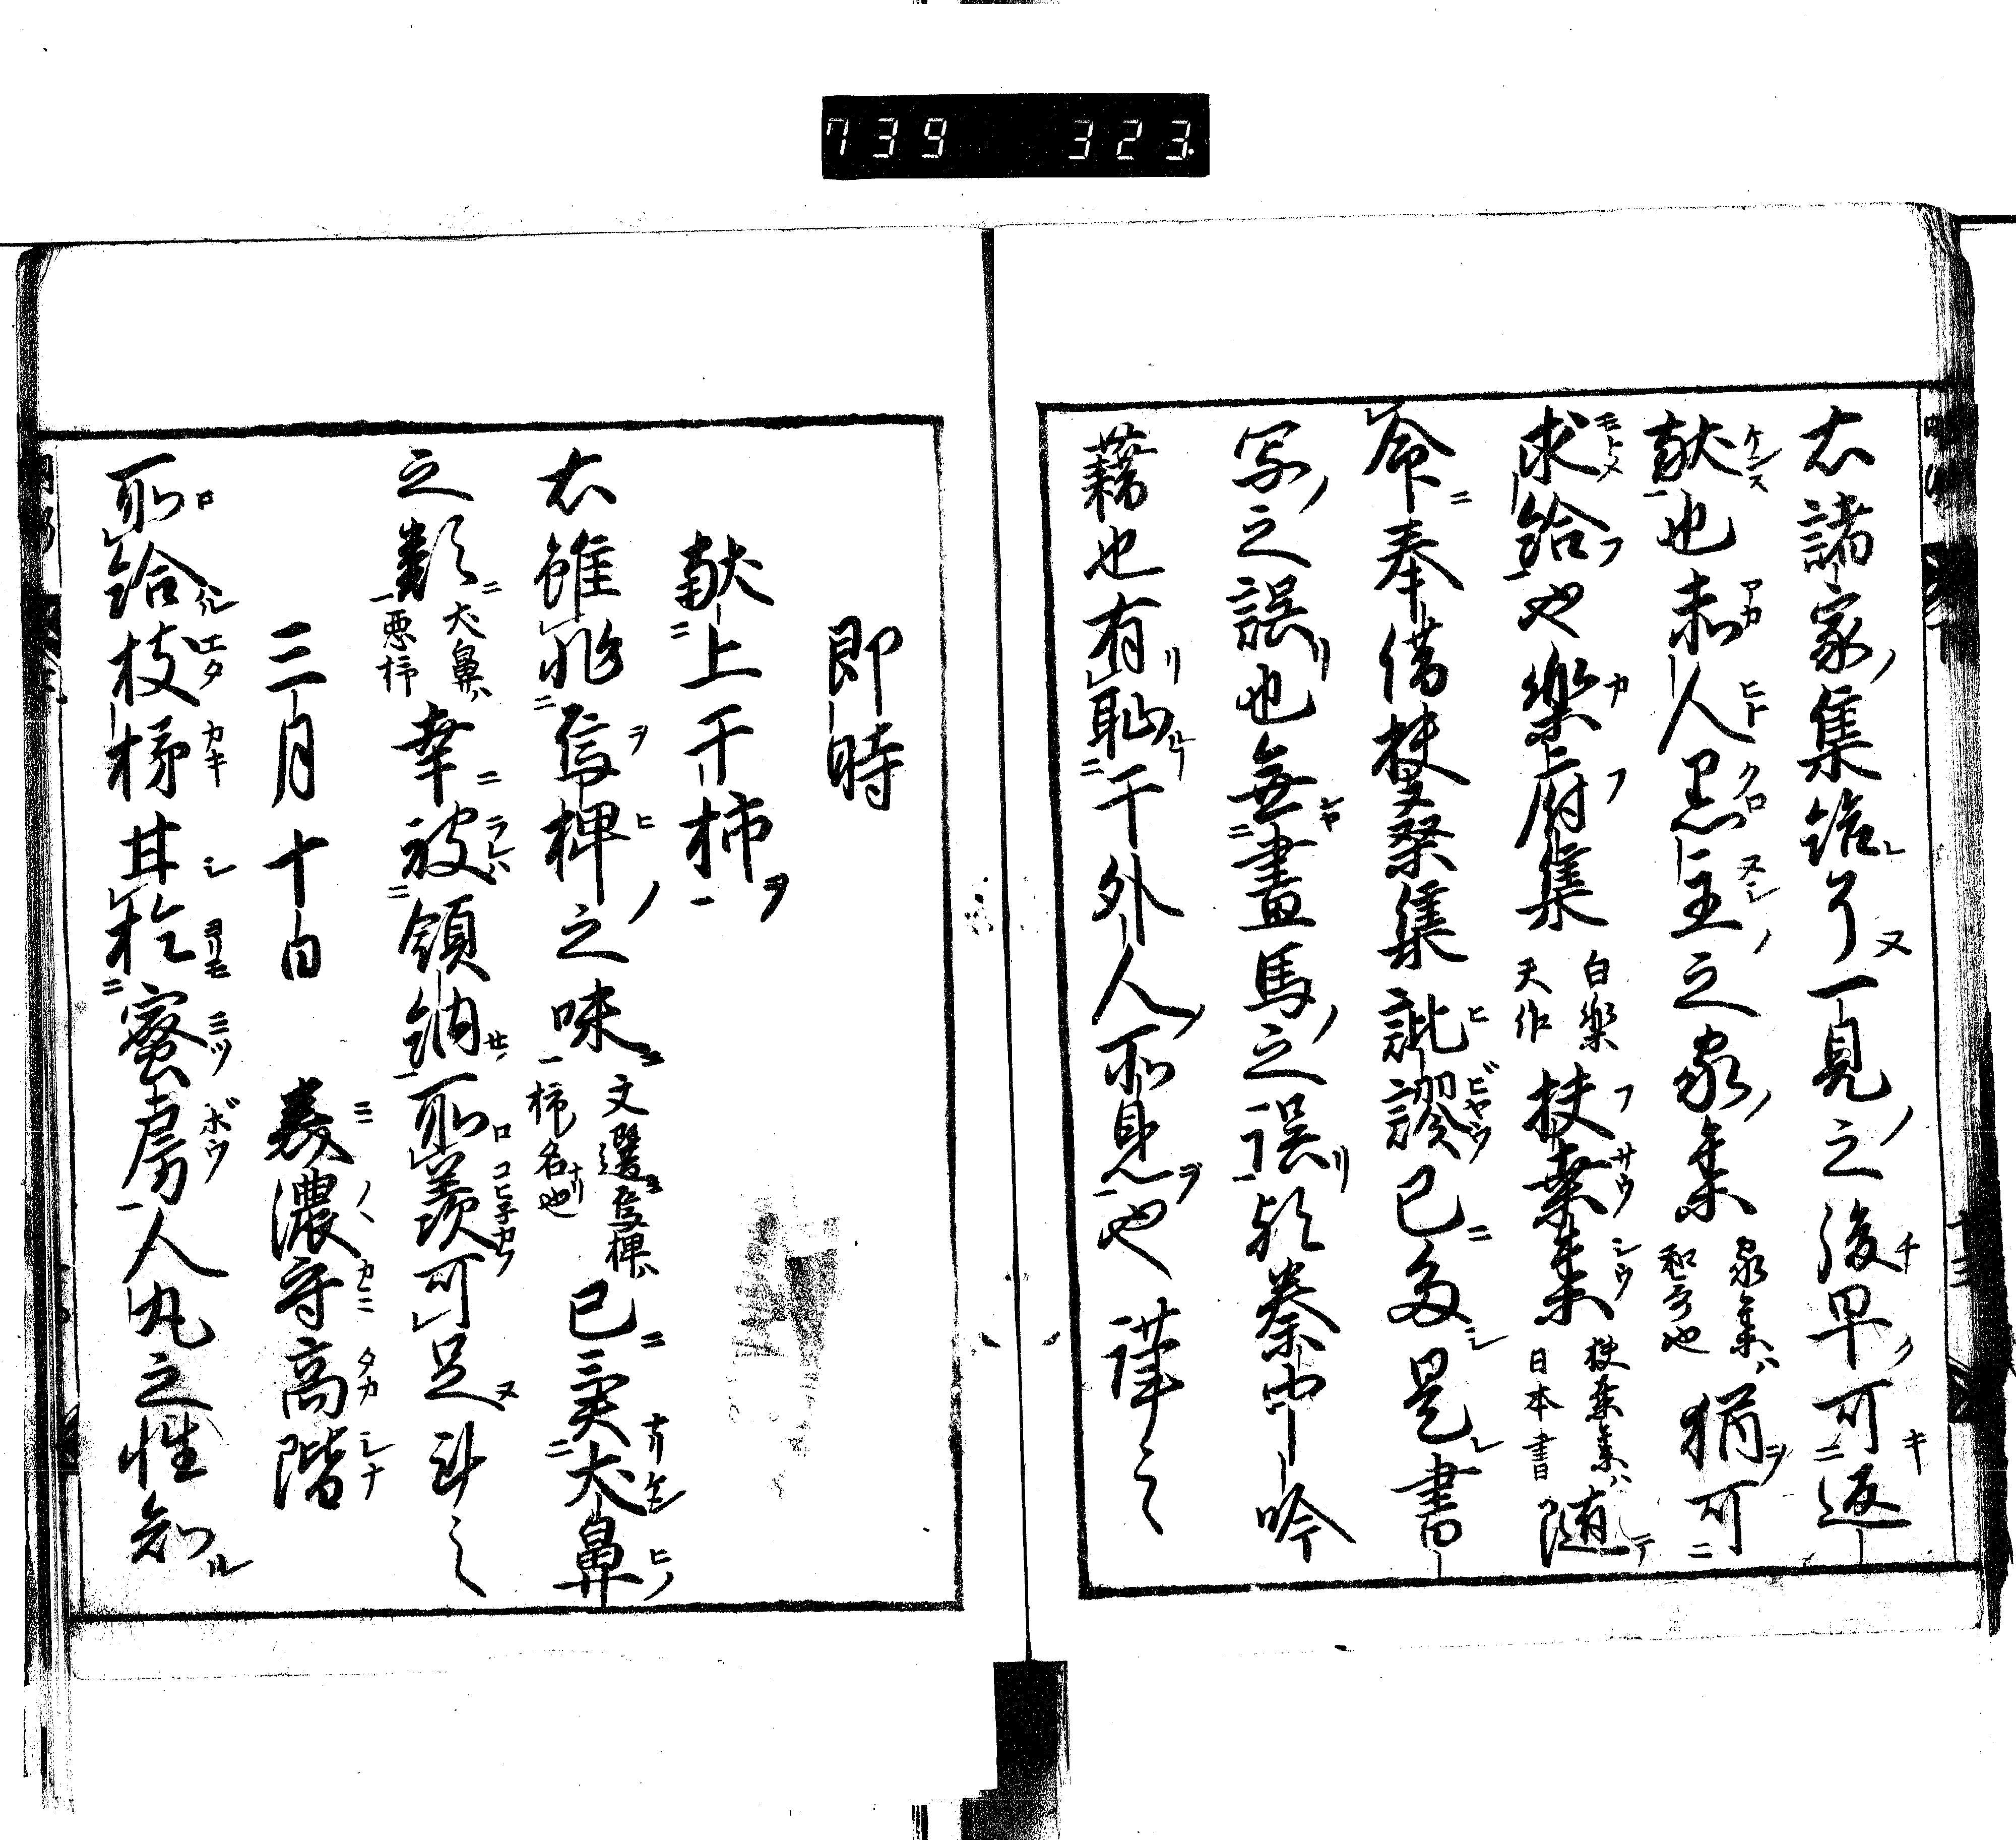 739 323
右諸家集給了一見之後早可返
献也赤人黒主之家集家集ハ和哥也猶可
求給也樂府集白樂天作扶桒集扶桒集ハ日本書随
命奉借扶桑集訛謬已多是書
写之誤也無畫馬之誤於巻中吟
藉也有恥于外人所見也謹々
即時
献上干柿
右雖非烏椑之味文選烏椑ハ柿名也已異犬鼻
之類犬鼻ハ悪柿幸被領納所羨可足耳々
三月十日 美濃守高階
所給枝柹甘於蜜房人丸之性知